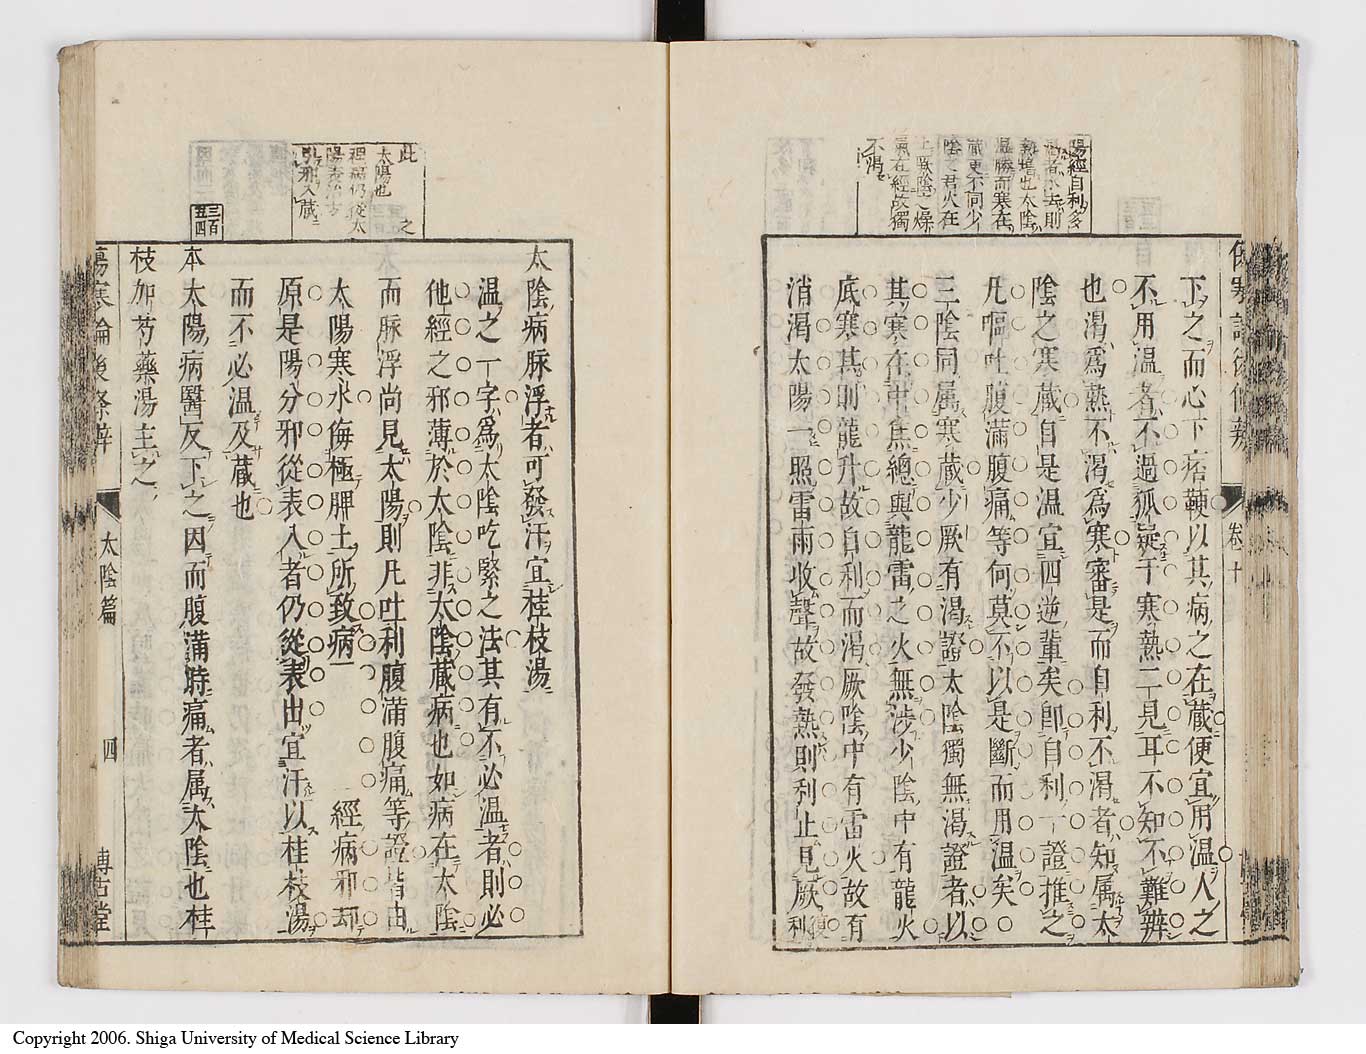 陽經自利多
渴者水去則
熱增也太陰
濕勝而寒在
藏更不同少
陰之君火在
上厥陰之燥
氣在經故獨
不渴
下之而心下痞鞕以其病之在藏便宜用温人之
不用温者不過狐疑于寒熱二見耳不知不難辨
也渴爲熱不渴爲寒審是而自利不渴者知属太
陰之寒藏自是温宜四逆輩矣即自利一證推之
凡嘔吐腹滿腹痛等何莫不以是斷而用温矣
三陰同属寒藏少厥有渴證太陰獨無渴證者以
其寒在中焦總與龍雷之火無涉少陰中有龍火
底寒甚則龍升故自利而渴厥陰中有雷火故有
消渴太陽一照雷雨收聲故發熱則利止見厥復利
卷十
太陰病脉浮者可發汗宜桂枝湯
温之一字爲太陰吃緊之法其有不必温者則必
他經之邪薄於太陰非太陰藏病也如病在太陰
而脉浮尚見太陽則凡吐利腹滿腹痛等證皆由
太陽寒水侮極脾土所致病一 經病邪却
原是陽分邪從表入者仍從表出宜汗以桂枝湯
而不必温及藏也
此 之
太陽也
引邪入藏
三百
五四
本太陽病醫反下之因而腹滿時痛者属太陰也桂
枝加芍藥湯主之
傷寒論後條辨 太陰篇 四 博古堂
Copyright 2006. Shiga University of Medical Science Library